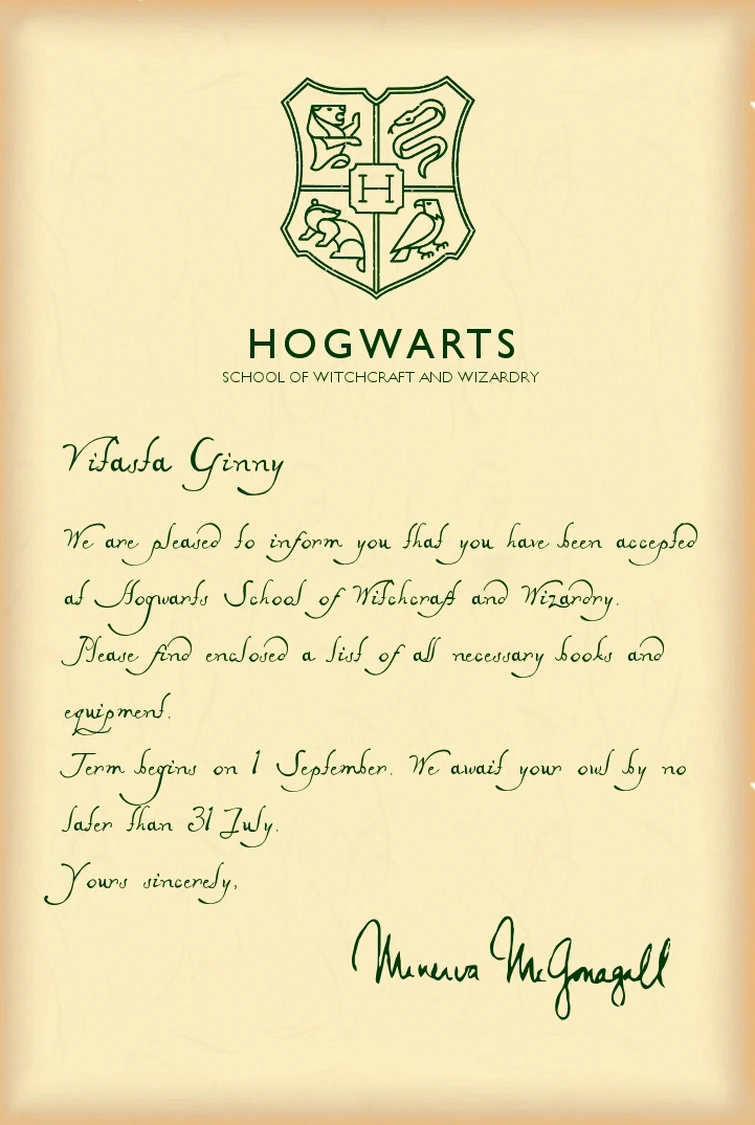 H
HOGWARTS
SCHOOL OF WITCHCRAFT AND WIZARDRY
Vitasta Ginny
We are pleased to inform you that you have been accepted
at Hogwarts School of Witchcraft and Wizardry.
Please find enclosed a list of all necessary books and
equipment.
Term begins on 1 September. We await your owl by no
later than 31 July.
Yours sincerely,
Minerva McGonagall